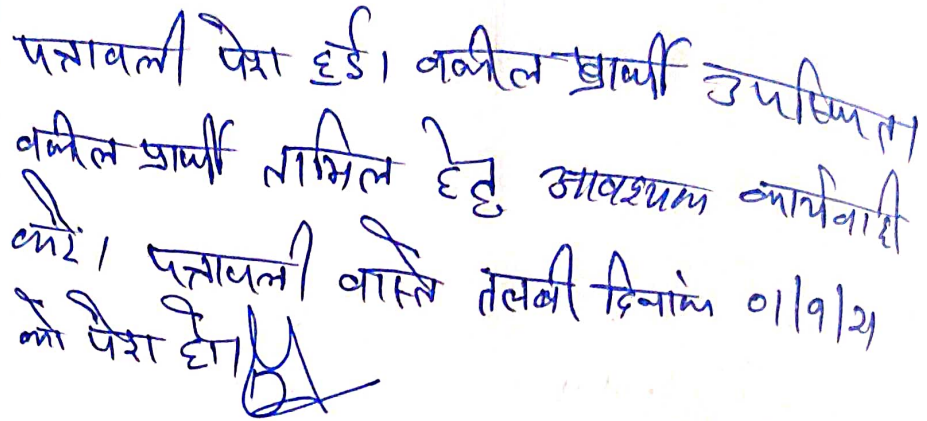 पत्रावली पेश हुई। वकील प्रार्थी उपस्थित।
वकील प्रार्थी तामिल हेतु आवश्यक कार्यवाही
करें। पत्रावली वास्ते तलबी दिनांक 01/9/21
को पेश हो।